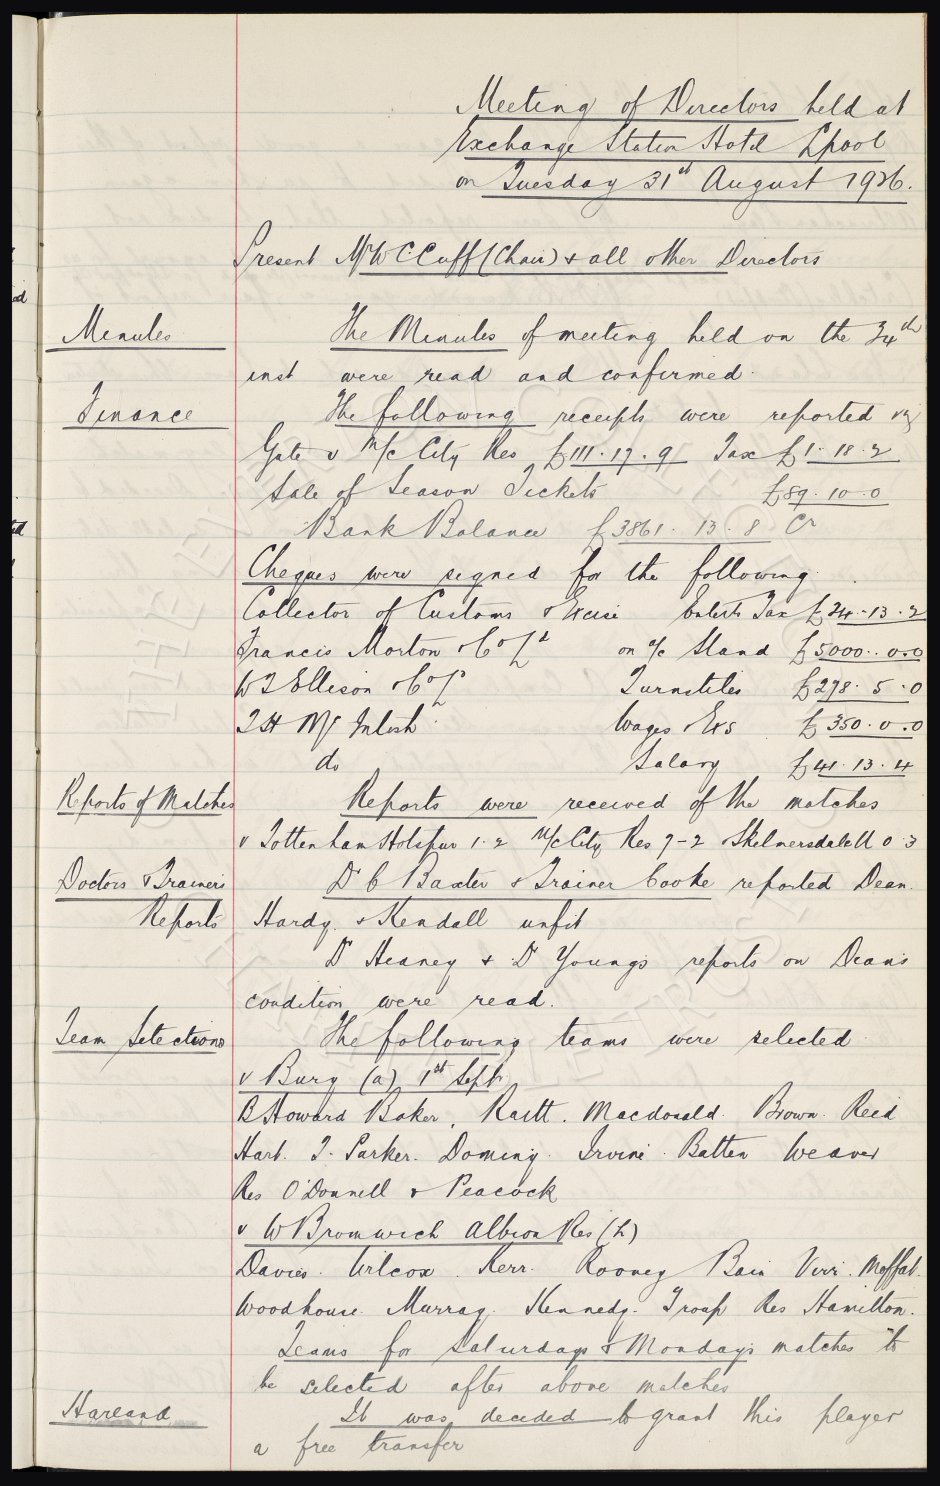 Meeting of Directors held at
Exchange Station Hotel L'pool
on Tuesday 31st August 1926.
Present Mr W C Cuff (Chair) & all other Directors
Minutes The Minutes of meeting held on the 24th
inst were read and confirmed.
Finance The following receipts were reported viz
Gate v M/c City Res £111.17.9 Tax £1.18.2
Sale of Season Tickets £89.10.0
Bank Balance £3861.13.8 Cr
Cheques were signed for the following.
Collector of Customs & Excise Enterts Tax £24.13.2
Francis Morton & Co Ld on a/c Stand £5000.0.0
W T Ellison & Co Ld Turnstiles £278.5.0
T H McIntosh Wages & Exs £350.0.0
do Salary £41.13.4
Reports of Matches Reports were received of the matches
v Tottenham Hotspur 1-2 M/c City Res 7-2 & Skelmersdale U 0-3
Doctors & Trainers Dr C Baxter & Trainer Cooke reported Dean.
Reports Hardy. & Kendall unfit
Dr Heaney & Dr Young's reports on Dean's
condition were read.
Team Selections The following teams were selected
v Bury (a) 1st Sept.
B Howard Baker. Raitt. Macdonald. Brown. Reid
Hart. T. Parker. Dominy. Irvine. Batten Weaver
Res O'Donnell & Peacock
v W Bromwich Albion Res (h)
Davies. Wilcox. Kerr. Rooney Bain Virr. Moffat.
Woodhouse. Murray. Kennedy. Troup Res Hamilton.
Teams for Saturdays & Mondays matches to
be selected after above matches
Harland It was decided to grant this player
a free transfer